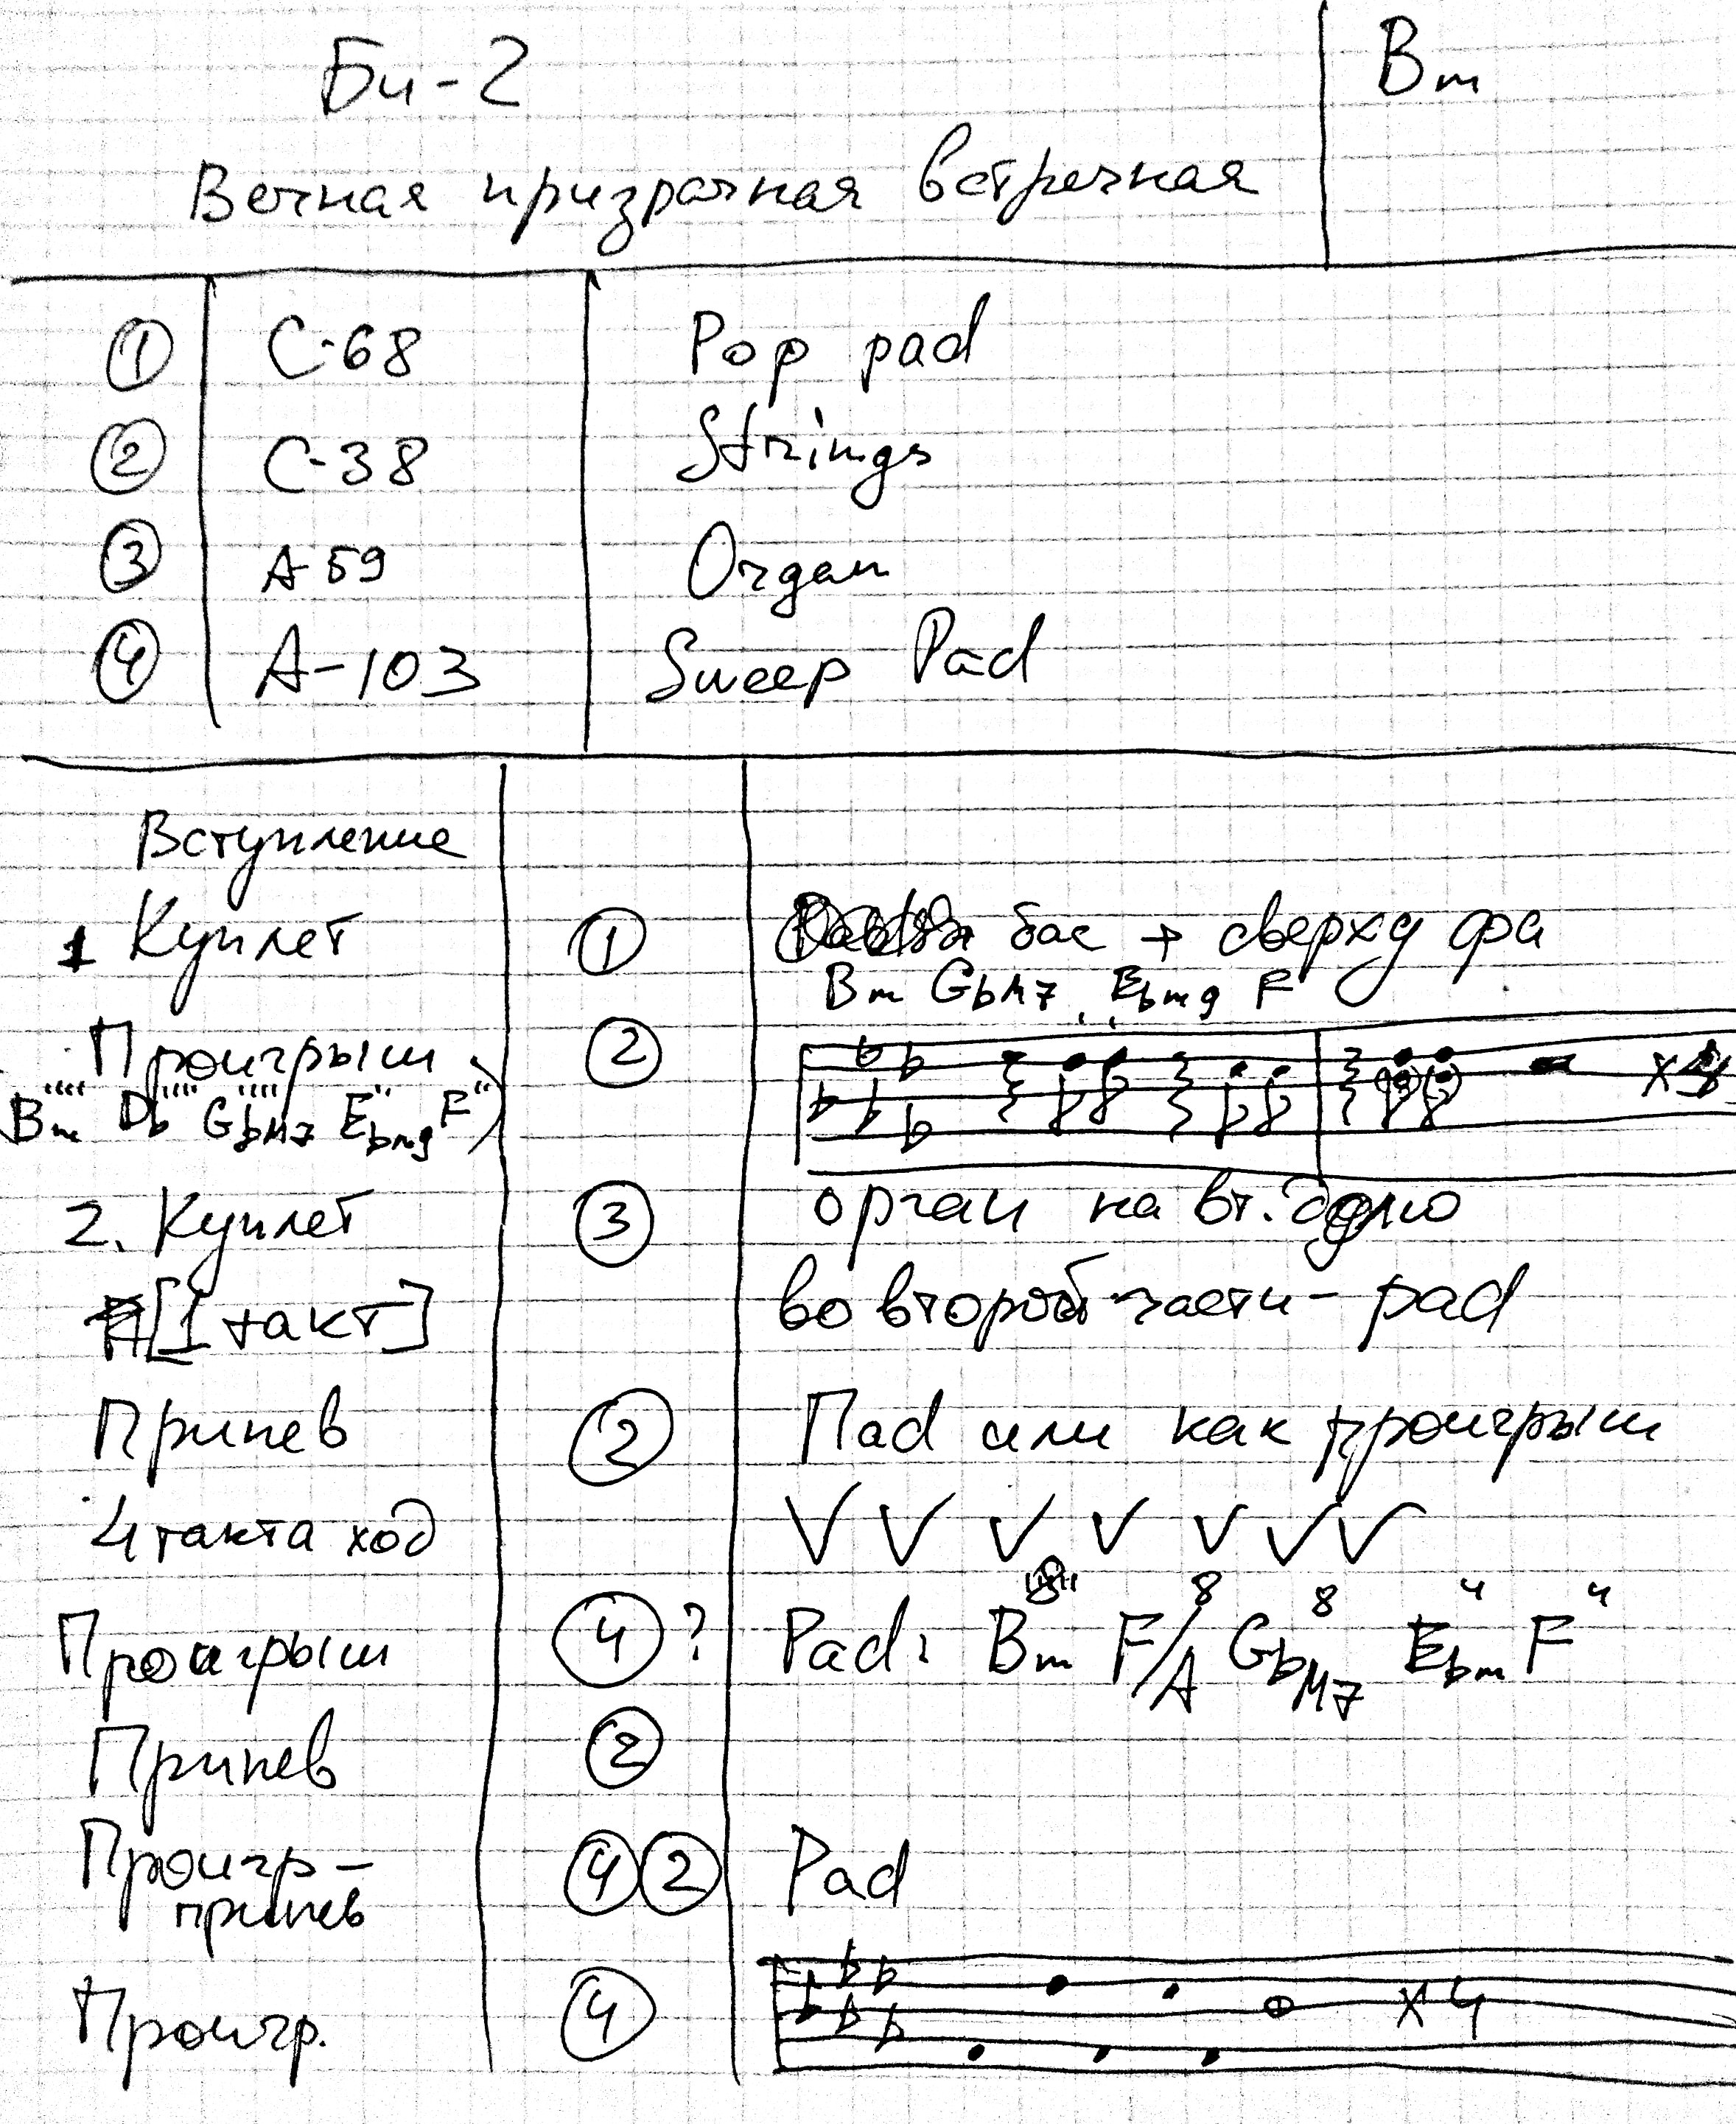 Би-2
Bm
Вечная призрачная встречная
1 C-68 Pop pad
2 C-38 Strings
3 A-59 Organ
4 A-103 Sweep Pad
Вступление
1 Куплет 1 бас + сверху фа
Bm GbM7 Ebm9 F
Проигрыш 2 x
Bm Db GbM7 Ebm9 F)
2. Куплет 3 орган на вт. долю
[1 такт] во второй части - pad
Припев 2 Паd или как проигрыш
4 такта ход V V V V V V V
8 8 4 4
Проигрыш 4? Pad: Bm F/A GbM7 Ebm F
Припев 2
Проигр- 4 2 Pad
припев
Проигр. 4 x4